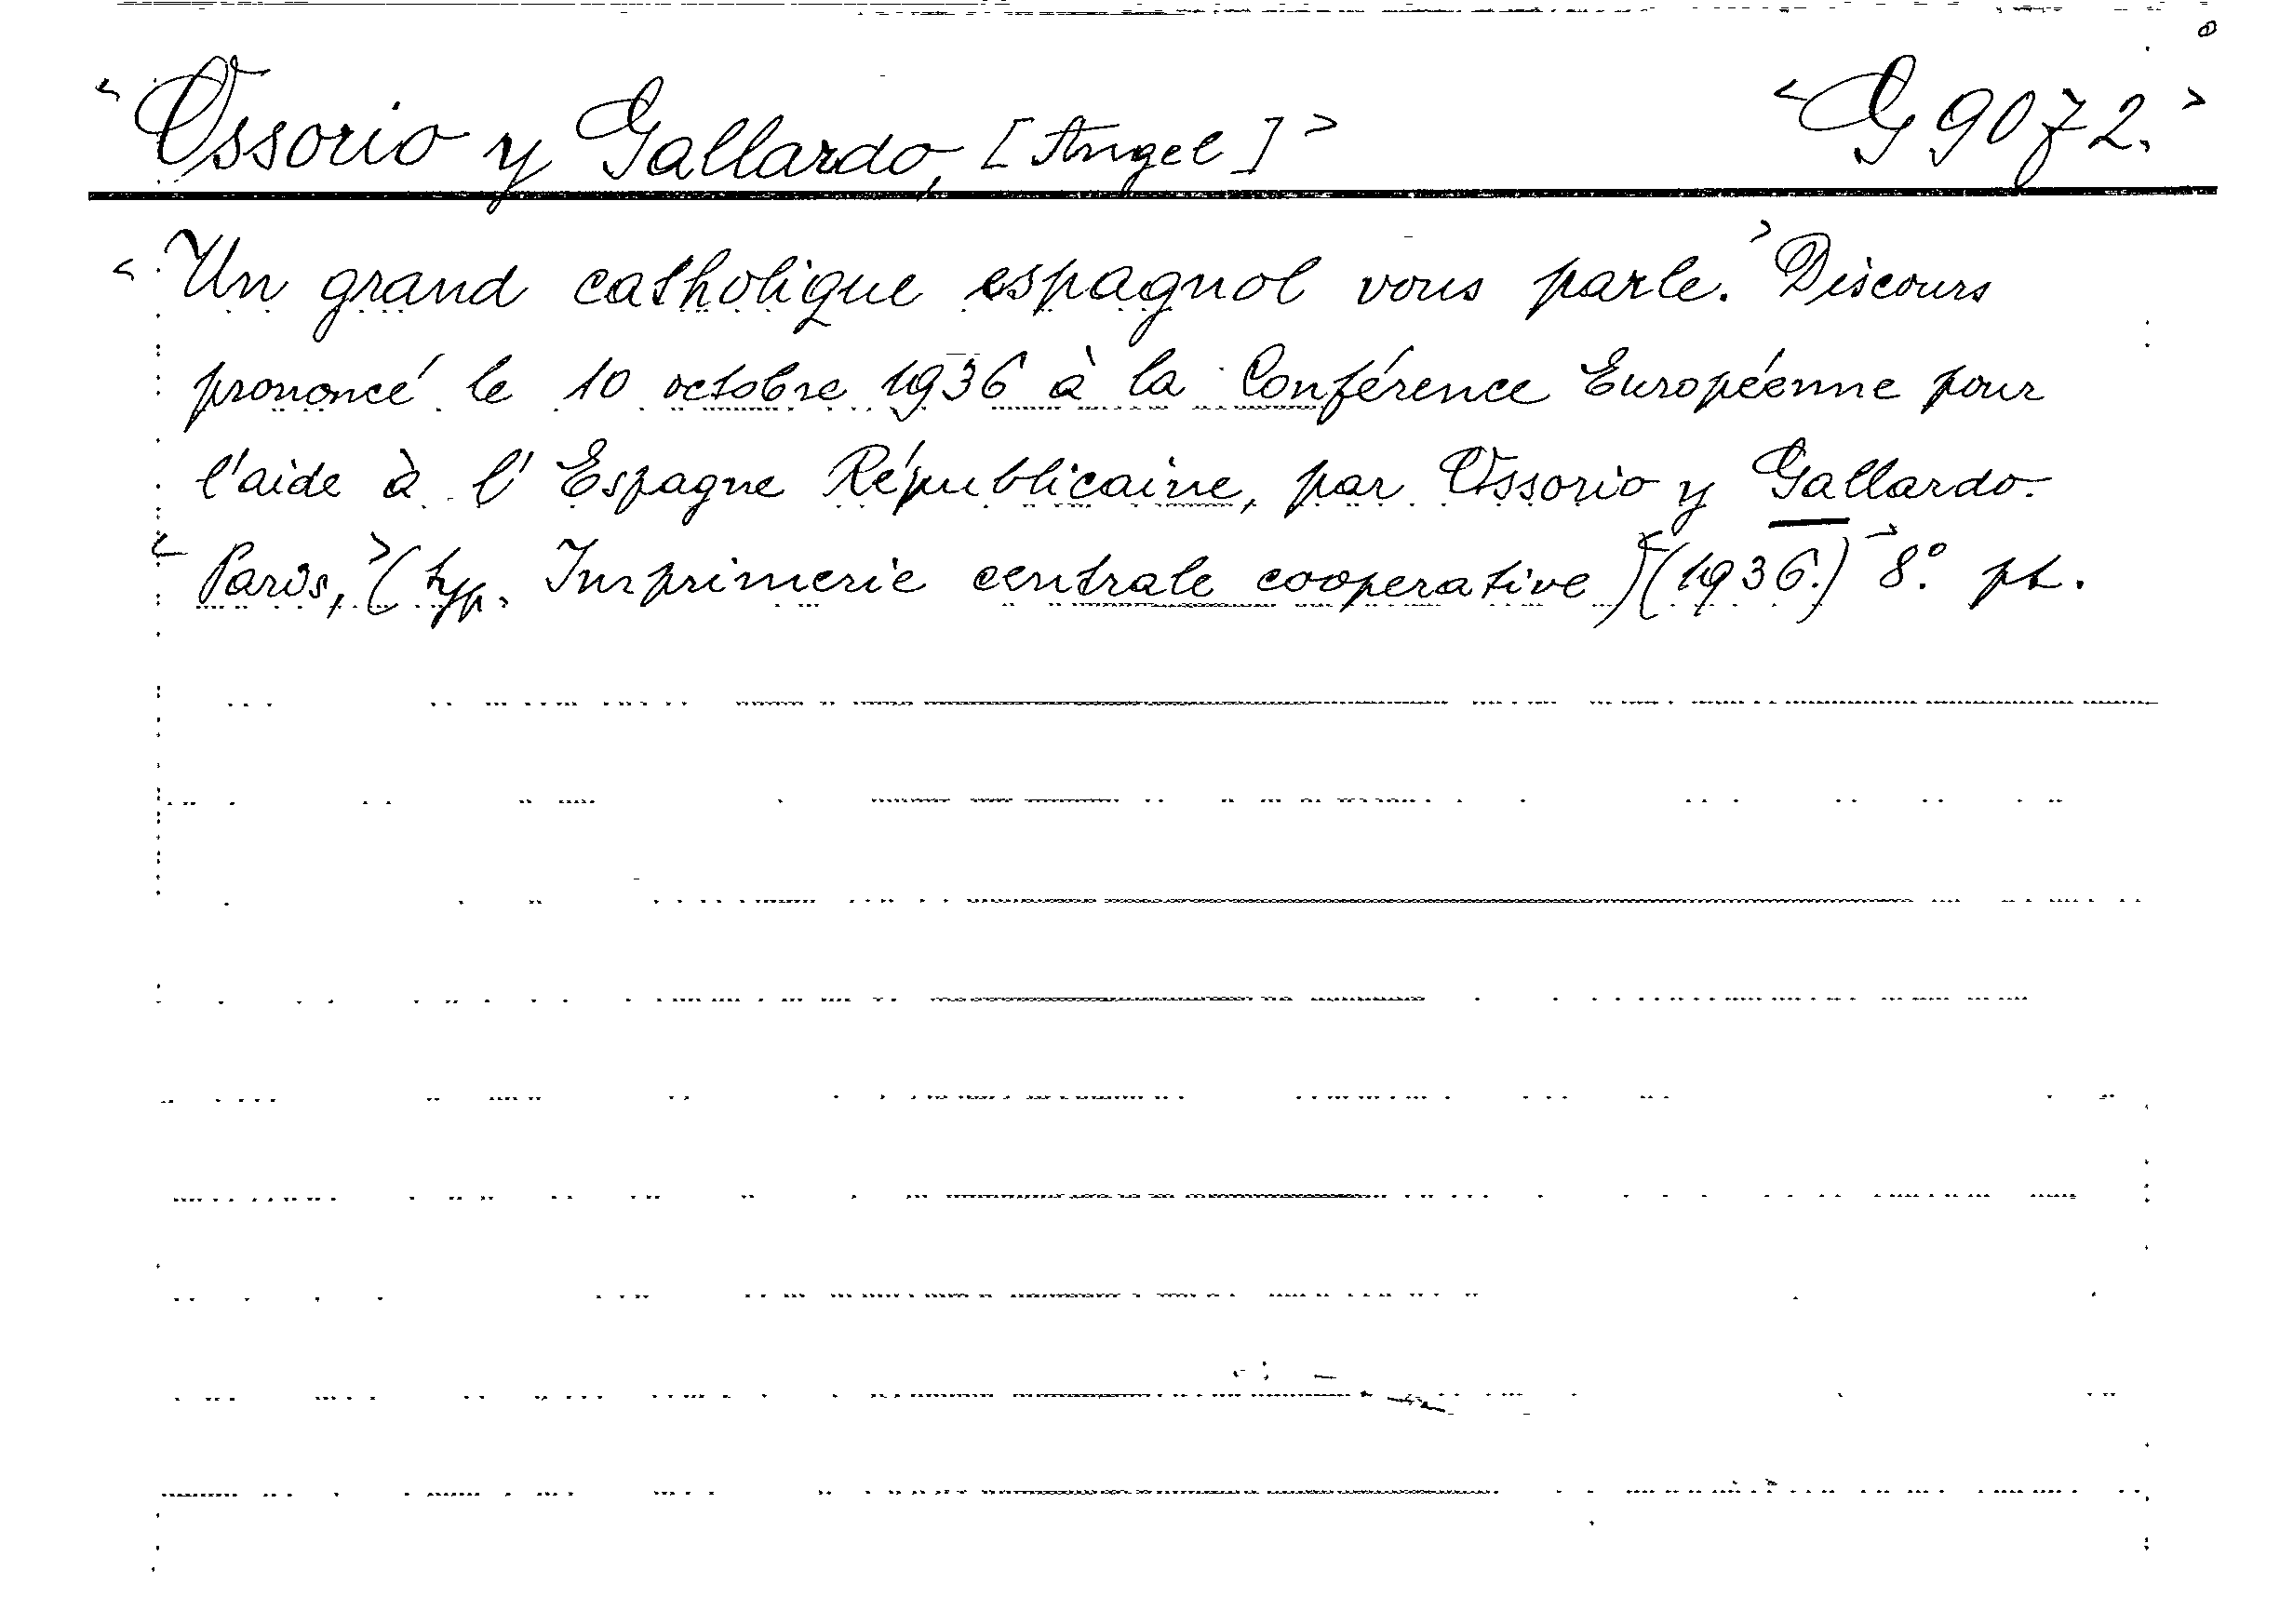 <Ossorio y Gallardo, [Angel]> <G 9072.>
<Un grand catholique espagnol vous parle.> Discours
prononcé le 10 octobre 1936 à la Conférence Européenne pour
l'aide à l'Espagne Républicaine, par Ossorio y Gallardo.
<Paris,> (typ. Imprimerie centrale cooperative) <(1936.)> 8.° pt.